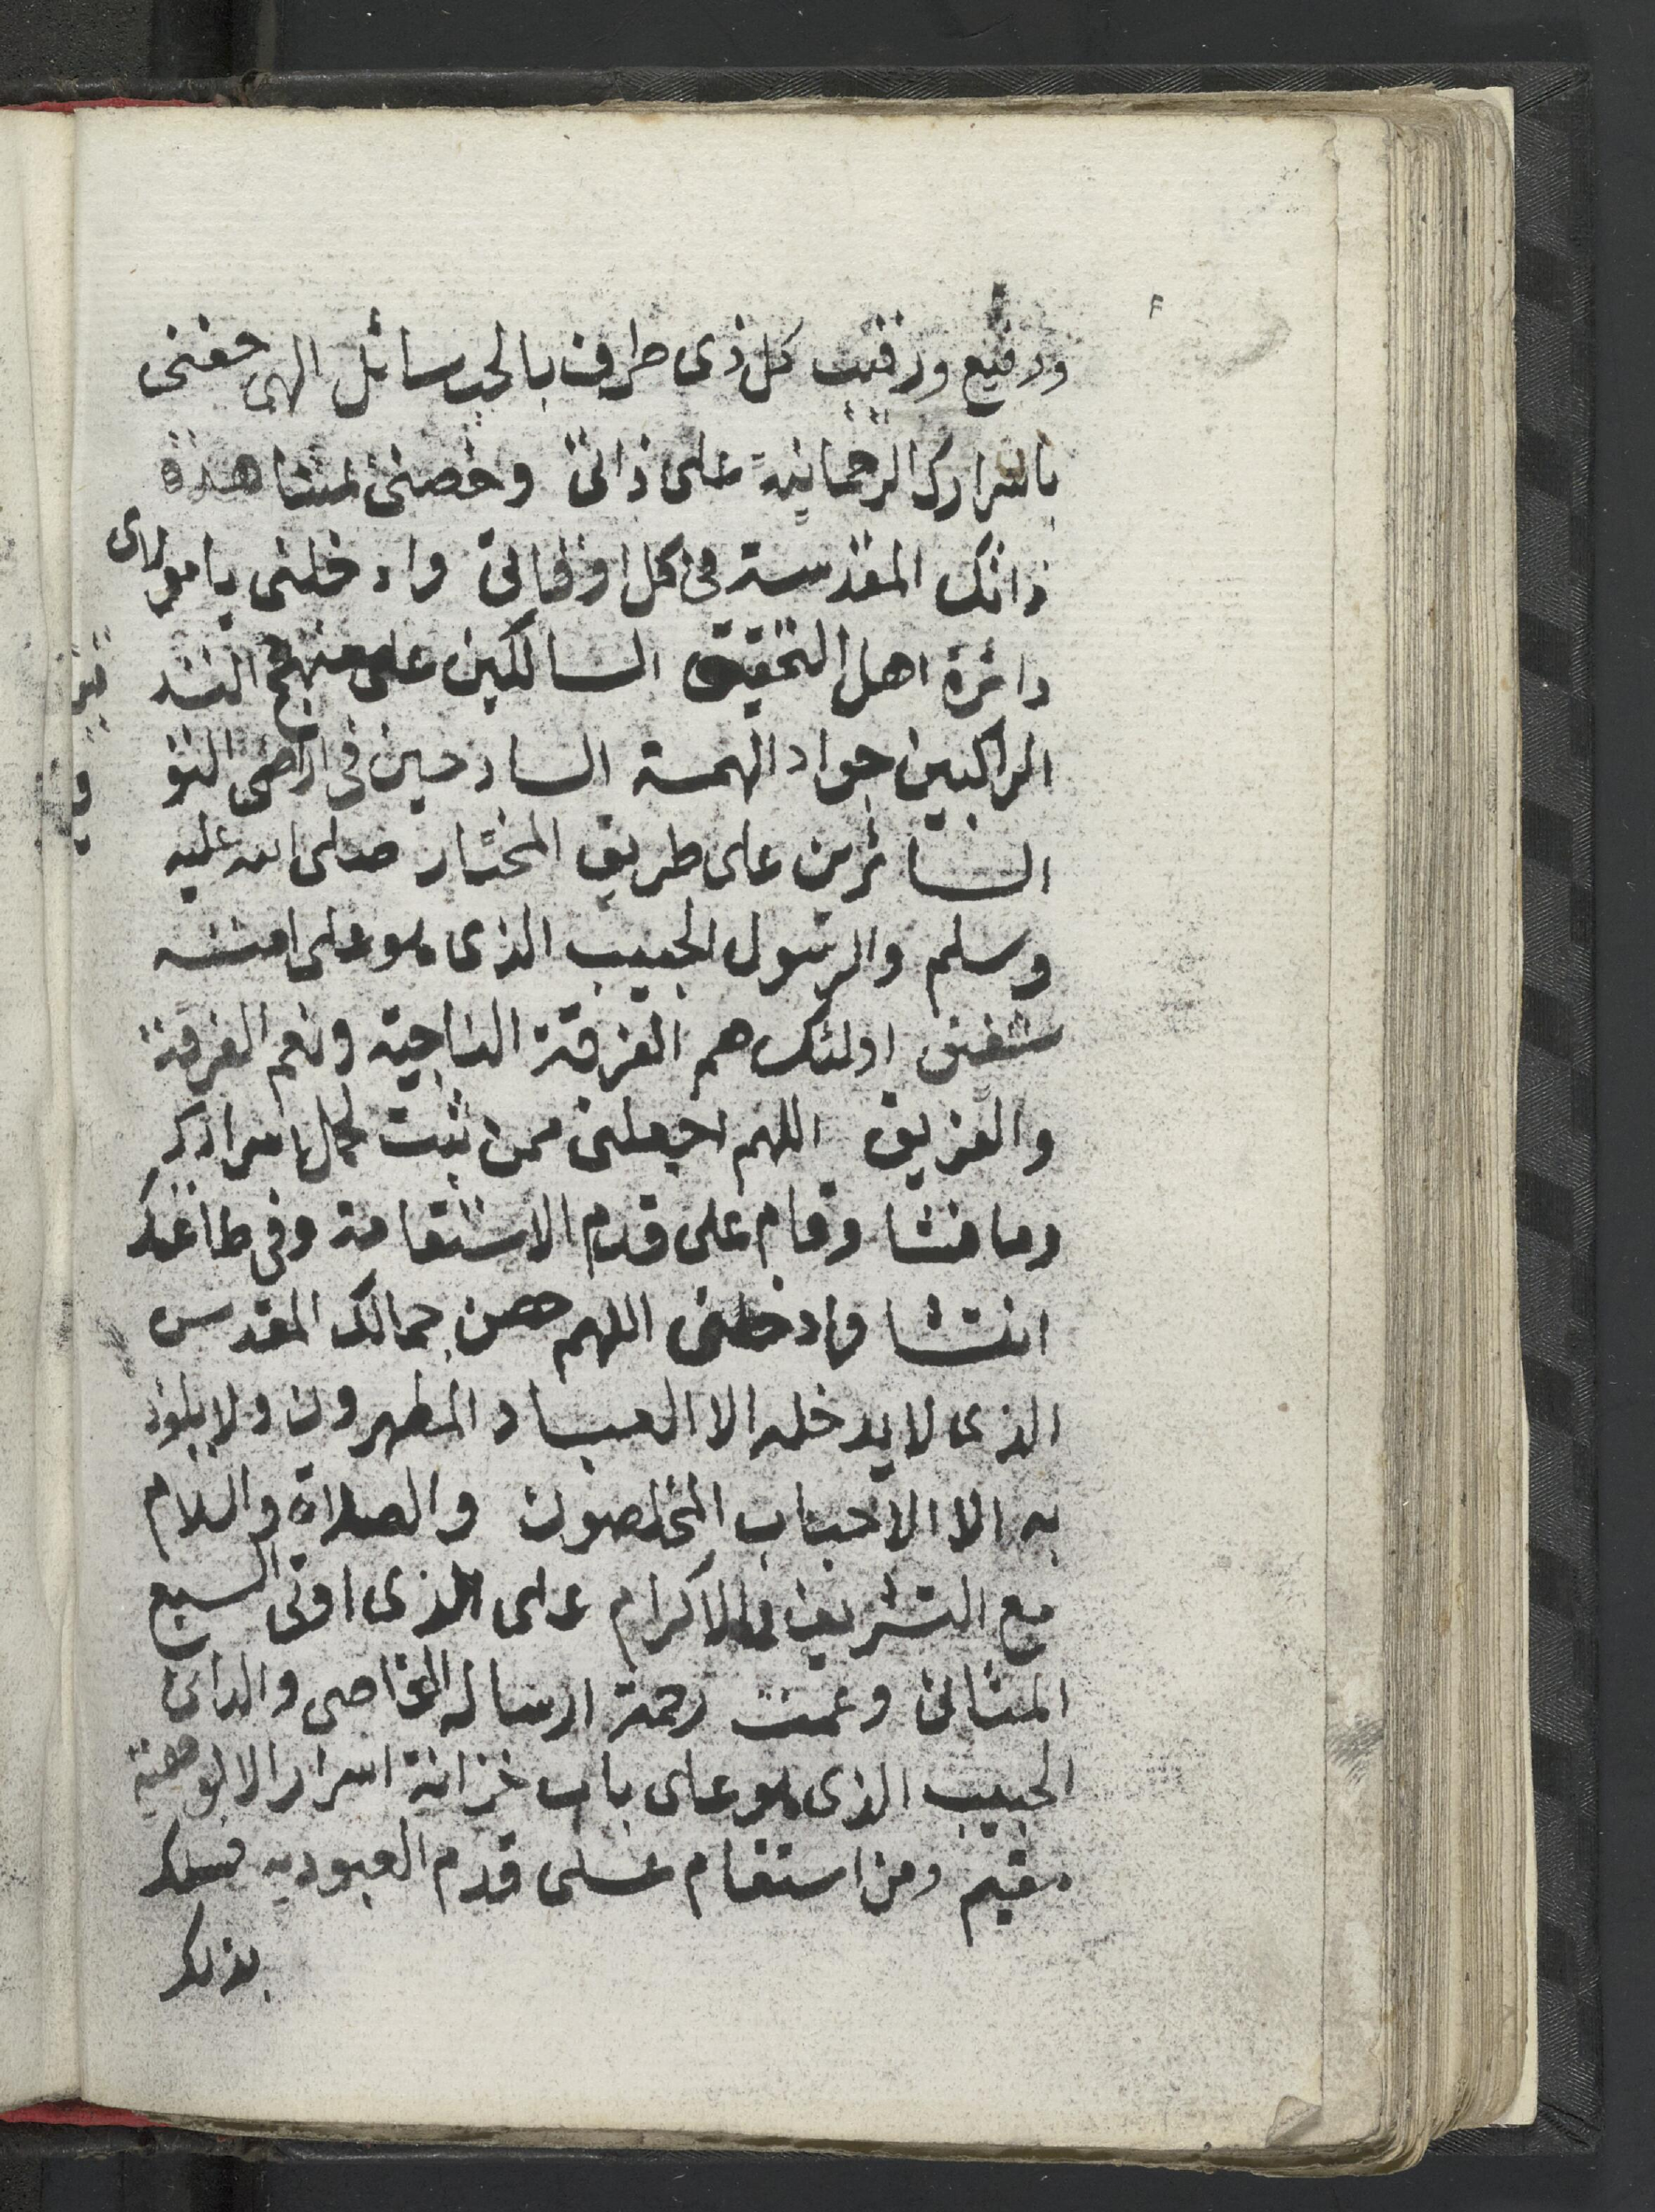 ودفيع ورقيب كل ذى طرف بالحب سائل الهى حفنى
باسرارك الرحمانية على ذاتى وخصنى لمشاهدة
ذاتك المقدسة فى كل اوقاتى وادخلنى يا مولاى
دائرة اهل التحقيق السالكين على منهج التشد
الراكبين جواد الهمة السارحين فى اراضى التو
السائرين على طريق المختار صلى الله عليه
وسلم والرسول الحبيب الذى هو على امته
شفيق اولئك هم الفرقة الناجية ونعم الفرقة
والفريق اللهم اجعلنى ممن ثبت لحمل اسرارك
وما فشا وقام على قدم الاستقامة وفى طاعتك
انتشا وادخلنى اللهم حصن جمالك المقدس
الذى لا يدخله الا العباد المطهرون ولا يلوذ
به الا الاحباب المخلصون والصلاة والسلام
مع التشريف والاكرام على الذى اوتى السبع
المثانى وعمت رحمة ارساله القاصى والدانى
الحبيب الذى هو على باب خزانة اسرار الالوهية
مقيم ومن استقام على قدم العبودية فسلك
بذلك